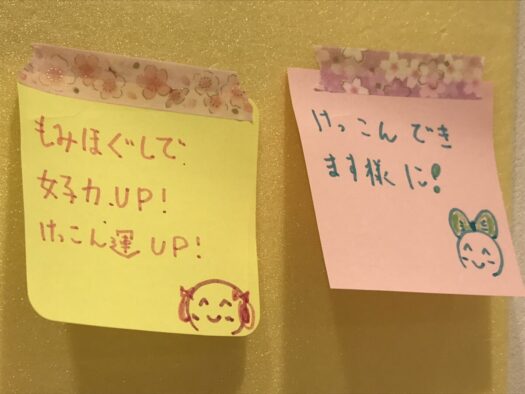 もみほぐしで
女子力UP!
けっこん運UP!
けっこんでき
ます様に!